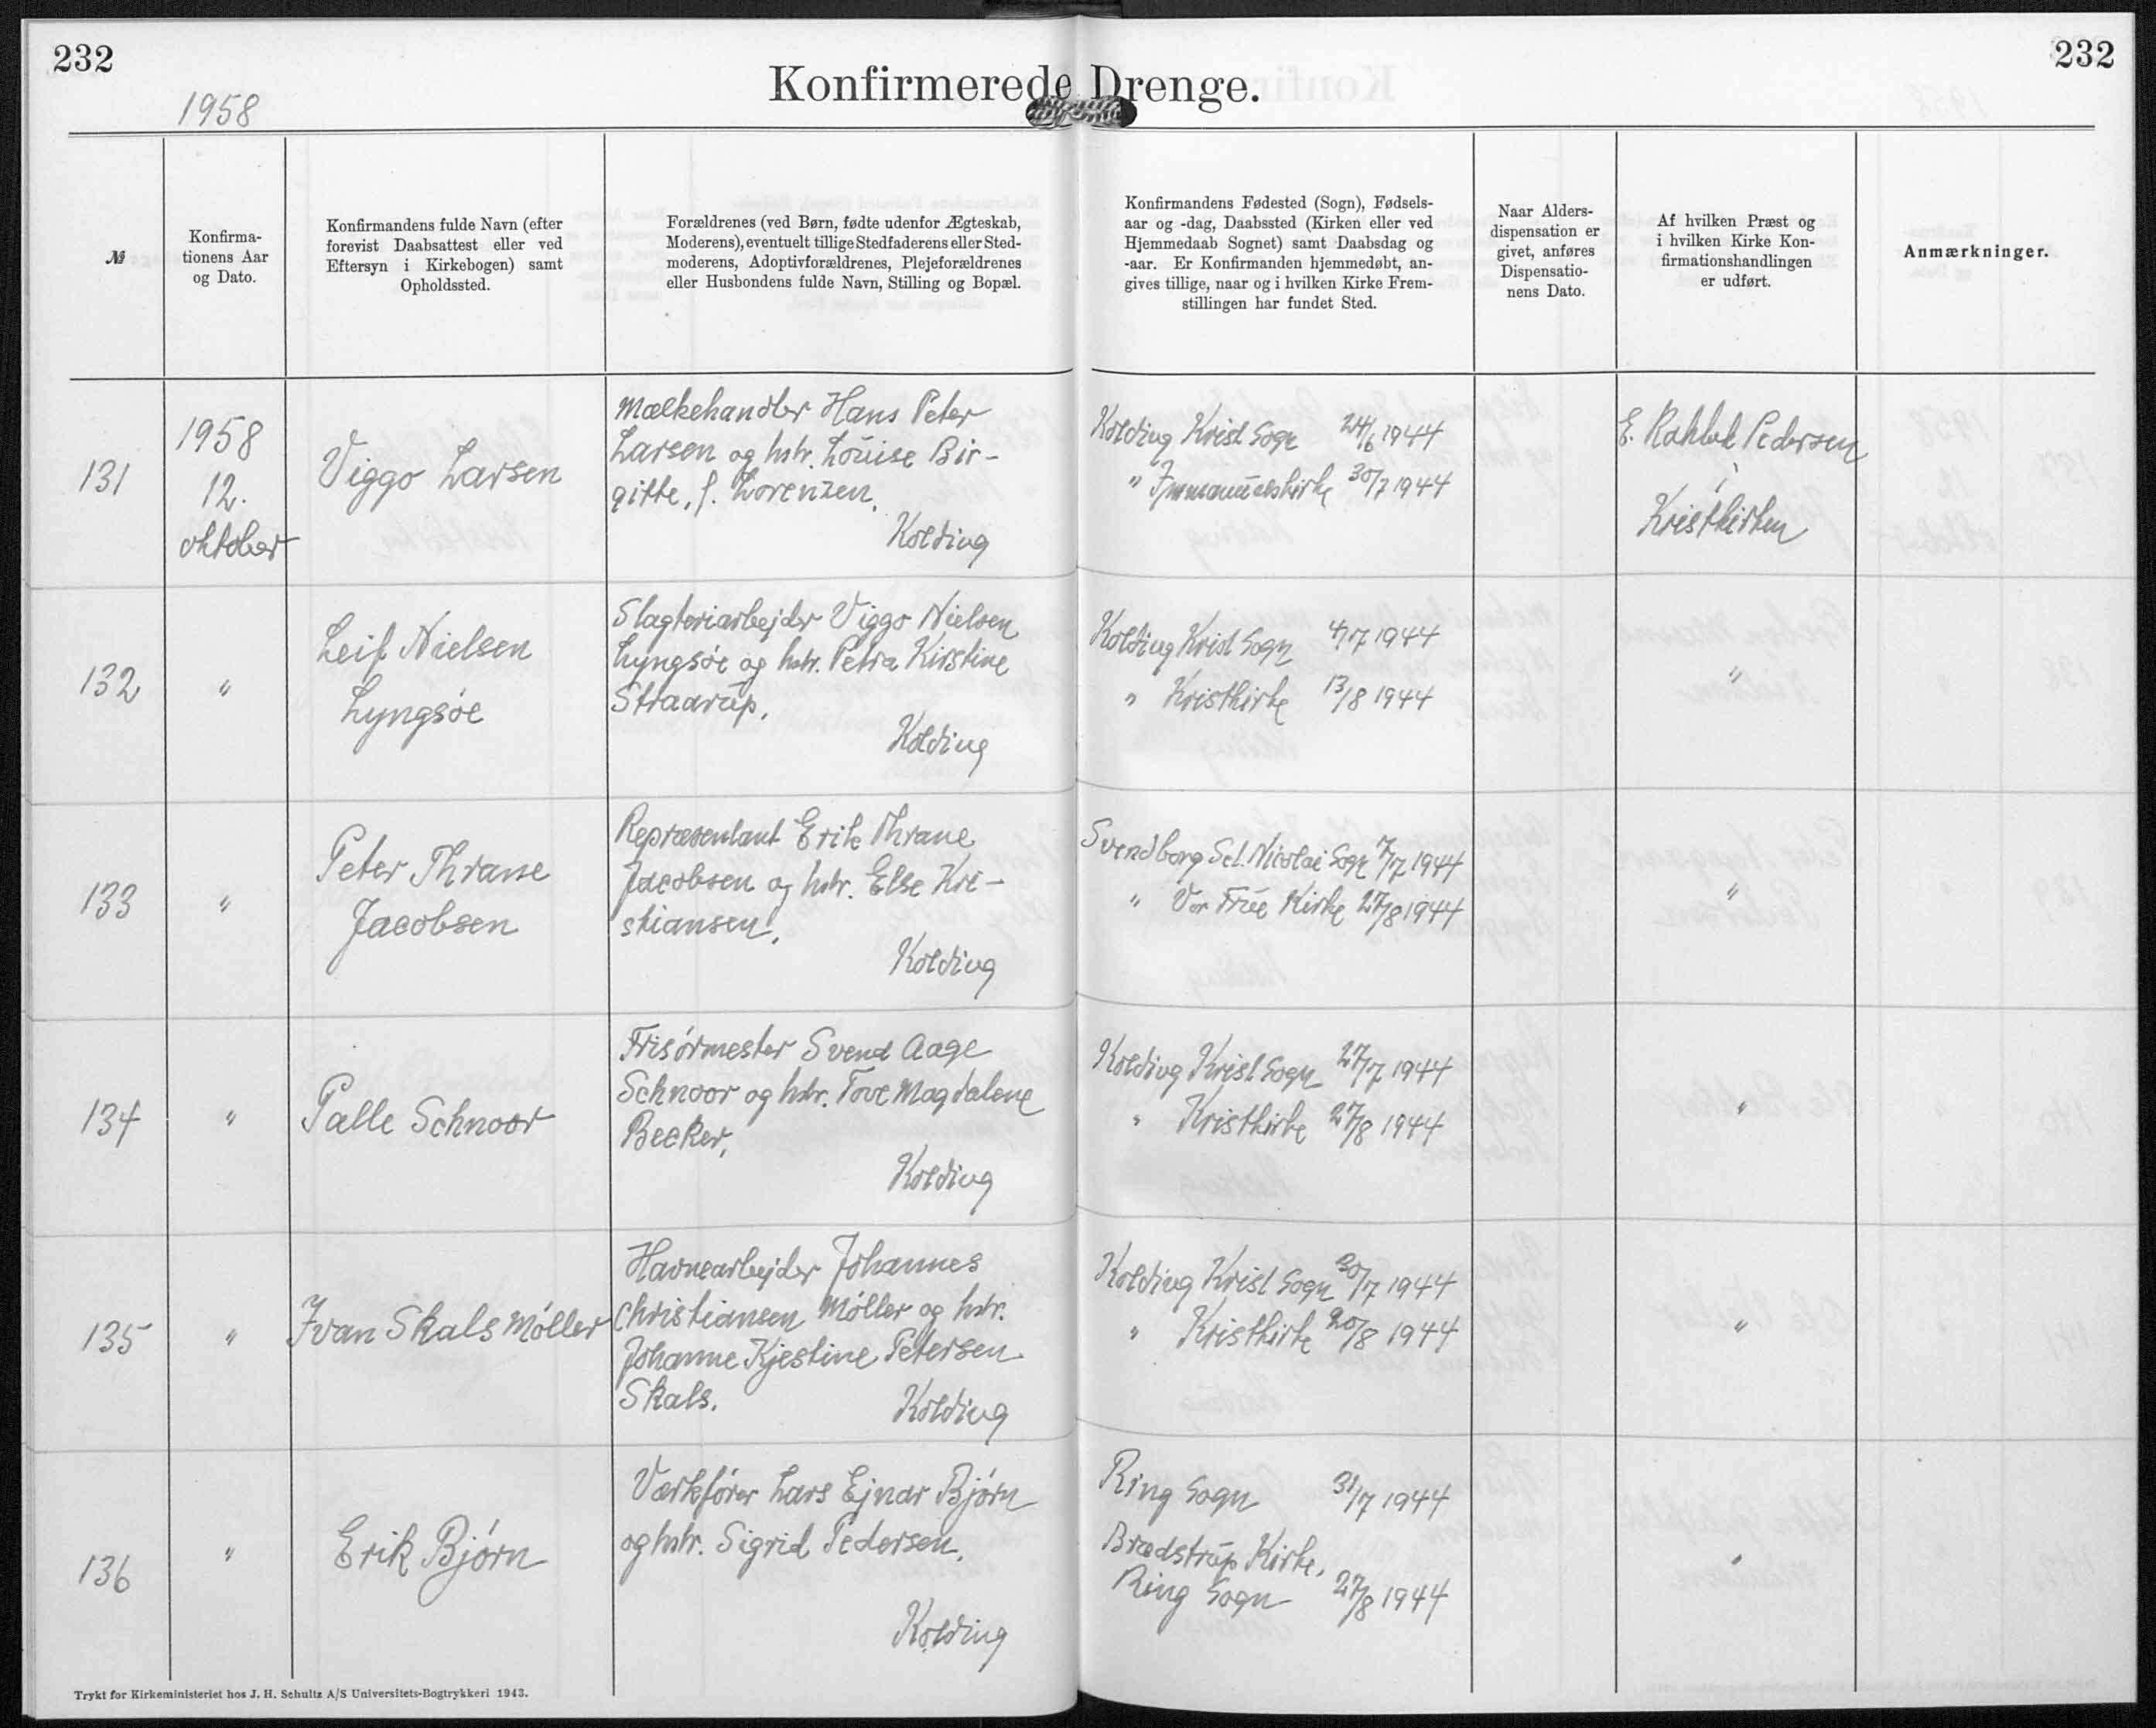 232
232
Konfirmerede Drenge.
1958
№
Konfirma-
tionens Aar
og Dato.
Konfirmandens fulde Navn (efter
forevist Daabsattest eller ved
Eftersyn i Kirkebogen) samt
Opholdssted.
Forældrenes (ved Børn, fødte udenfor Ægteskab,
Moderens), eventuelt tillige Stedfaderens eller Sted-
moderens, Adoptivforældrenes, Plejeforældrenes
eller Husbondens fulde Navn, Stilling og Bopæl.
Konfirmandens Fødested (Sogn), Fødsels-
aar og -dag, Daabssted (Kirken eller ved
Hjemmedaab Sognet) samt Daabsdag og
-aar. Er Konfirmanden hjemmedøbt, an-
gives tillige, naar og i hvilken Kirke Frem-
stillingen har fundet Sted.
Naar Alders-
dispensation er
givet, anføres
Dispensatio-
nens Dato.
Af hvilken Præst og
i hvilken Kirke Kon-
firmationshandlingen
er udført.
Anmærkninger.
131
1958
12.
oktober
Viggo Larsen
Mælkehandler Hans Peter
Larsen og hstr. Louise Bir-
gitte, f. Lorenzen,
Kolding
Kolding Krist Sogn 24/6 1944
" Immanuelskirke 30/7 1944
E. Pedersen
i
Kristkirken
132
"
Leif Nielsen
Lyngsöe
Slagteriarbejder Viggo Nielsen
Lyngsöe og hstr. Petra Kirstine
Straarup,
Kolding
Kolding Krist Sogn 4/7 1944
" Kristkirke 13/8 1944
"
133
"
Peter Thrane
Jacobsen
Repræsentant Erik Thrane
Jacobsen og hstr. Else Kri-
stiansen,
Kolding
Svendborg Sct. Nicolai Sogn 7/7 1944
" Vor Frue Kirke 27/8 1944
"
134
"
Palle Schnoor
Frisörmester Svend Aage
Schnoor og hstr. Tove Magdalene
Becker,
Kolding
Kolding Krist Sogn 27/7 1944
" Kristkirke 27/8 1944
"
135
"
Ivan Skals Möller
Havnearbejder Johannes
Christiansen Möller og hstr.
Johanne Kjestine Petersen
Skals.
Kolding
Kolding Krist Sogn 30/7 1944
" Kristkirke 20/8 1944
"
136
"
Erik Björn
Værkförer Lars Ejnar Björn
og hstr. Sigrid Pedersen,
Kolding
Ring Sogn 31/7 1944
Brædstrup Kirke,
Ring Sogn 27/8 1944
"
Trykt for Kirkeministeriet hos J. H. Schultz A/S Universitets-Bogtrykkeri 1943.